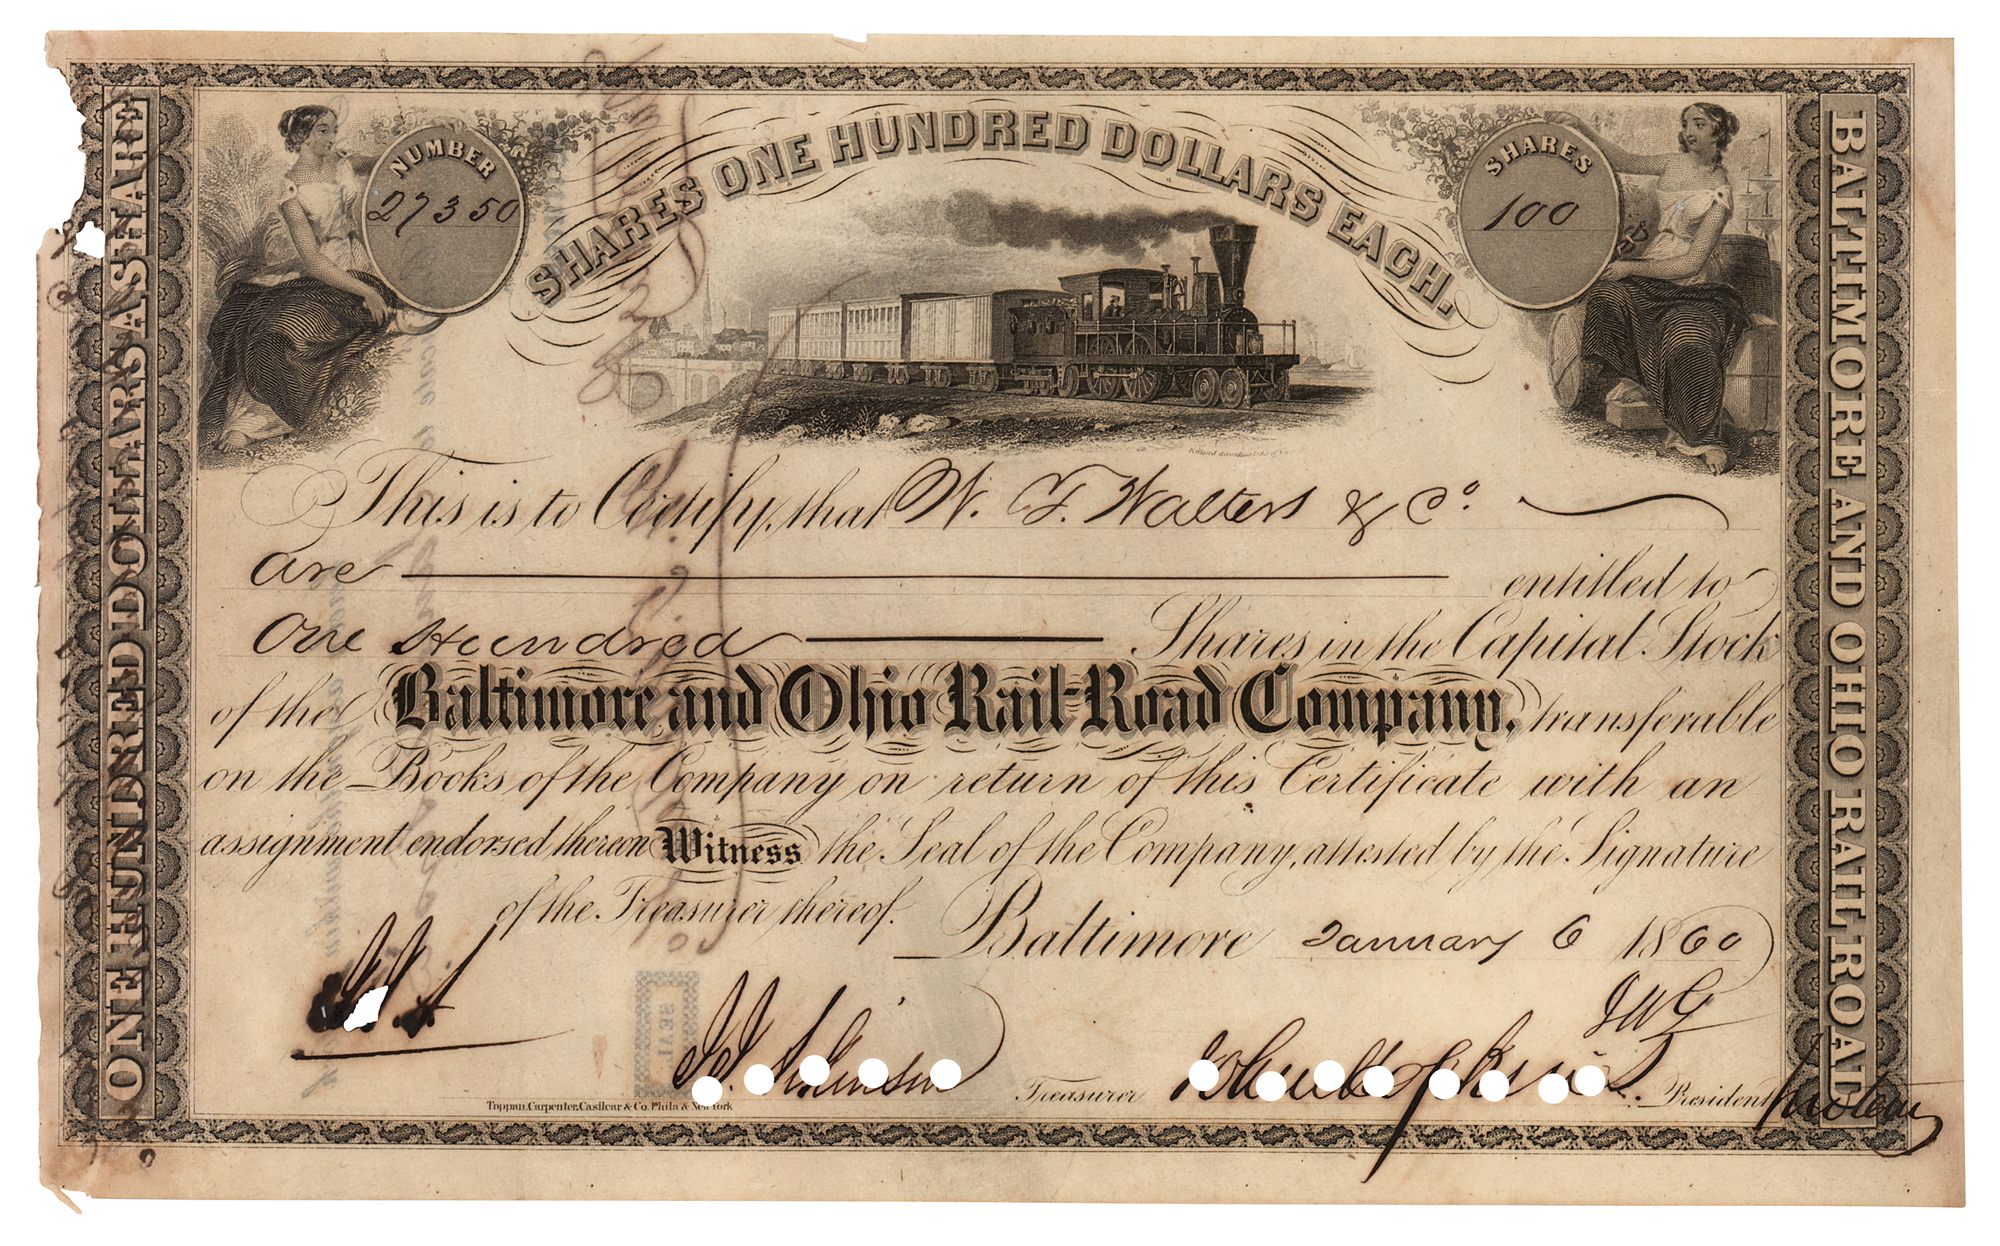 NUMBER
27350
SHARES ONE HUNDRED DOLLARS EACH.
SHARES
100
ONE HUNDRED DOLLARS A SHARE
BALTIMORE AND OHIO RAIL ROAD
This is to Certify, that W. T. Walters & Co.
are entitled to
One Hundred Shares in the Capital Stock
of the Baltimore and Ohio Rail-Road Company, transferable
on the Books of the Company on return of this Certificate with an
assignment endorsed thereon Witness the Seal of the Company, attested by the Signature
of the Treasurer thereof. Baltimore January 6 1860
JWG
Treasurer
President
protem
SEAL
Toppan, Carpenter, Casilear & Co. Phila & New York